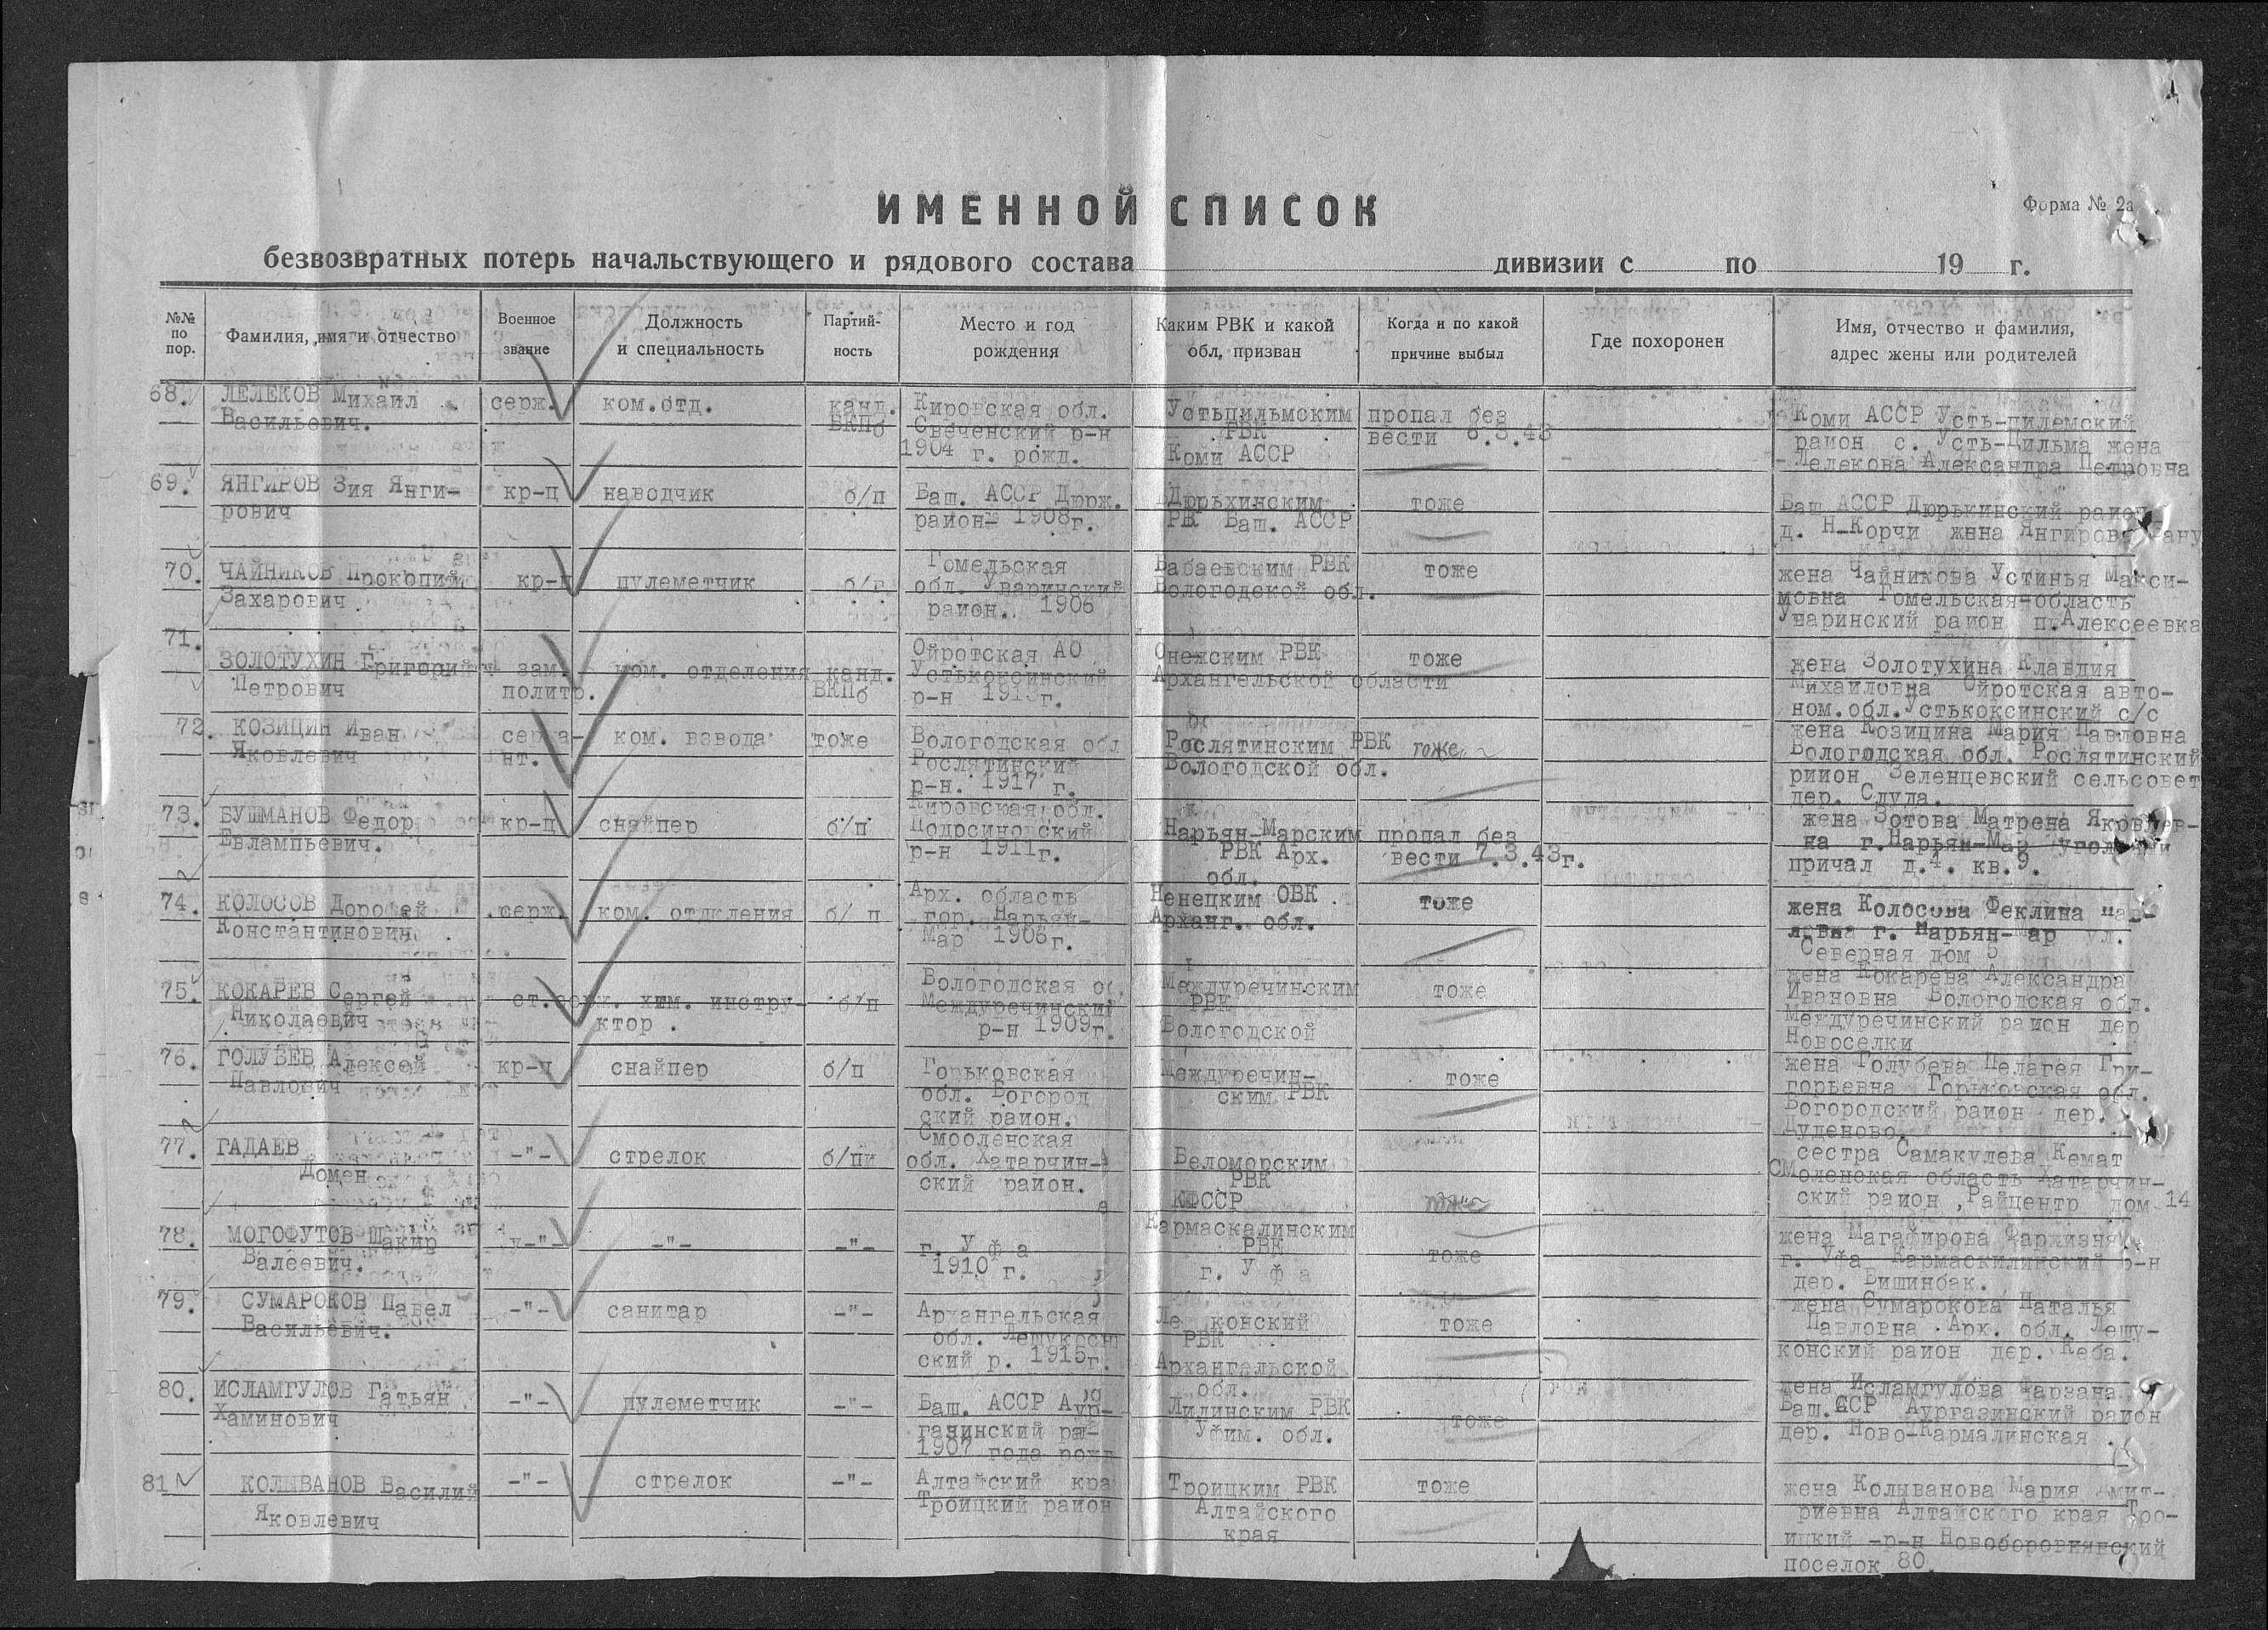 ИМЕННОЙ СПИСОК
Форма № 2а
безвозвратных потерь начальствующего и рядового состава дивизии с по 19 г.
№№ по пор.
Фамилия, имя и отчество
Военное звание
Должность и специальность
Партий-ность
Место и год рождения
Каким РВК и какой обл. призван
Когда и по какой причине выбыл
Где похоронен
Имя, отчество и фамилия, адрес жены или родителей
68. ЛЕЛЕКОВ Михаил Васильевич.
серж.
ком.отд.
канд. ВКПб
Кировская обл.
Свеченский р-н
1904 г. рожд.
Устьцильмским
РВК
Коми АССР
пропал без
вести 6.3.43
Коми АССР Усть-цилемский
район с. Усть-Цильма жена
Лелекова Александра Петровна
69. ЯНГИРОВ Зия Янги-
рович
кр-ц
наводчик
б/п
Баш. АССР Дюрж.
район 1908г.
Дюрьхинским
РК Баш. АССР
тоже
Баш АССР Дюрькинский район
д. Н-Корчи жена Янгирова
70. ЧАЙНИКОВ Прокопий
Захарович
кр-ц
пулеметчик
б/п
Гомельская
обл. Уваринский
район. 1906
Бабаевским РВК
Вологодской обл.
тоже
жена Чайникова Устинья Макси-
мовна Гомельская область
Уваринский район п.Алексеевка
71.
ЗОЛОТУХИН Григорий
Петрович
зам.
политр.
ком. отделения
канд.
ВКПб
Ойротская АО
Устькоксинский
р-н 1913г.
Онежским РВК
Архангельской области
тоже
жена Золотухина Клавдия
Михайловна Ойротская авто-
ном.обл.Устькоксинский с/с
72. КОЗИЦИН Иван
Яковлевич
сержа-
нт.
ком. взвода
тоже
Вологодская обл
Рослятинский
р-н. 1917 г.
Рослятинским РВК
Вологодской обл.
тоже
жена Козицина Мария Павловна
Вологодская обл. Рослятинский
риион Зеленцевский сельсовет
дер. Слуда.
73. БУШМАНОВ Федор
Евлампьевич.
кр-ц
снайпер
б/п
Кировская обл.
Подосиновский
р-н 1911г.
Нарьян-Марским
РВК Арх.
обл.
пропал без
вести 7.3.43г.
жена Зотова Матрена Яковлев-
на г.Нарьян-Мар
причал д.4. кв.9.
74. КОЛОСОВ Дорофей
Константинович
серж.
ком. отделения
б/ п
Арх. область
гор. Нарьян-
Мар 1906г.
Ненецким ОВК
Арханг. обл.
тоже
жена Колосова Феклина Пав-
ловна г. Нарьян-Мар ул.
Северная дом 5
75. КОКАРЕВ Сергей
Николаевич
ст.серж.
хим. инстру-
ктор.
б/п
Вологодская о
Междуречинский
р-н 1909г.
Междуречинским
РВК
Вологодской
тоже
жена Кокарева Александра
Ивановна Вологодская обл.
Междуречинский район дер
Новоселки
76. ГОЛУБЕВ Алексей
Павлович
кр-ц
снайпер
б/п
Горьковская
обл. Богород
ский район.
Междуречин-
ским РВК
тоже
жена Голубева Пелагея Гри-
горьевна Горьковская обл.
Богородский район дер.
Дуденово.
77. ГАДАЕВ
Домен
-"-
стрелок
б/пи
Смооленская
обл. Хатарчин-
ский район.
Беломорским
РВК
КФССР
тоже
сестра Самакулева Кемат
Смоленская область Хатарчин-
ский район ,Райцентр дом 14
78. МОГОФУТОВ Шакир
Валеевич.
-"-
-"-
-"-
г. У ф а
1910 г.
Кармаскалинским
РВК
г. У ф а
тоже
жена Магафирова
г. Уфа Кармаскилинский р-н
дер. Бишинбак.
79. СУМАРОКОВ Павел
Васильевич.
-"-
санитар
-"-
Архангельская
обл. Лешукосн
ский р. 1915г.
Ле конский
РВК
Архангельской
обл.
тоже
жена Сумарокова Наталья
Павловна .Арх. обл. Лешу-
конский район дер. Кеба.
80. ИСЛАМГУЛОВ Гатьян
Хаминович
-"-
пулеметчик
-"-
Баш. АССР Аур-
газинский ра-
1907 года рожд
Лидинским РВК
Уфим. обл.
тоже
жена Исламгулова Фарзана
Баш.АССР Аургазинский район
дер. Ново-Кармалинская
81 КОЛЫВАНОВ Василий
Яковлевич
-"-
стрелок
-"-
Алтайский кра
Троицкий район
Троицким РВК
Алтайского
края
тоже
жена Колыванова Мария Дмит-
риевна Алтайского края Тро-
ицкий -р-н Новоборовлянский
поселок 80.